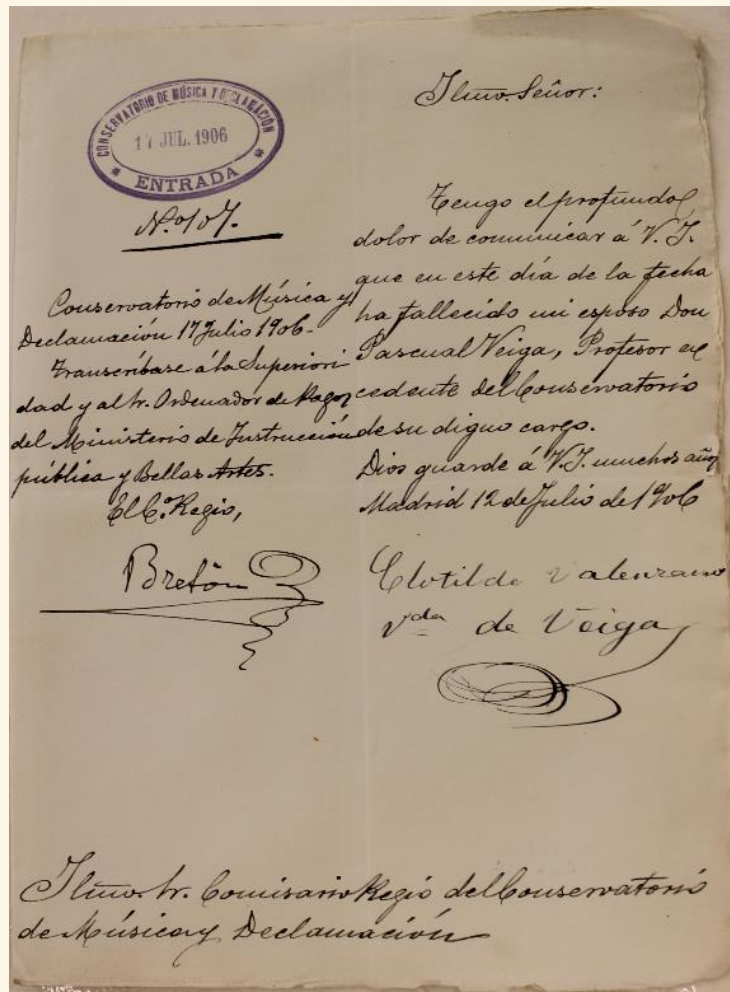 CONSERVATORIO DE MÚSICA Y DECLAMACIÓN
17 JUL. 1906
ENTRADA
Nº 107.
Conservatorio de Música y
Declamación 17 Julio 1906.
Transcríbase á la Superiori
dad y al Sr. Ordenador de Pagos
del Ministerio de Instrucción
pública y Bellas Artes.
El Cº Regio,
Bretón
Ilmo. Señor:
Tengo el profundo
dolor de comunicar á V. I.
que en este día de la fecha
ha fallecido mi esposo Don
Pascual Veiga, Profesor ex
cedente del Conservatorio
de su digno cargo.
Dios guarde á V. I. muchos años
Madrid 12 de Julio de 1906
Clotilde Valenzano
vda de Veiga
Ilmo. Sr. Comisario Regio del Conservatorio
de Música y Declamación